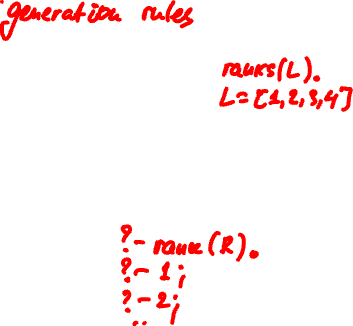 generation rules
ranks(L).
L=[1,2,3,4]
?- rank(R).
?- 1;
?- 2;
..